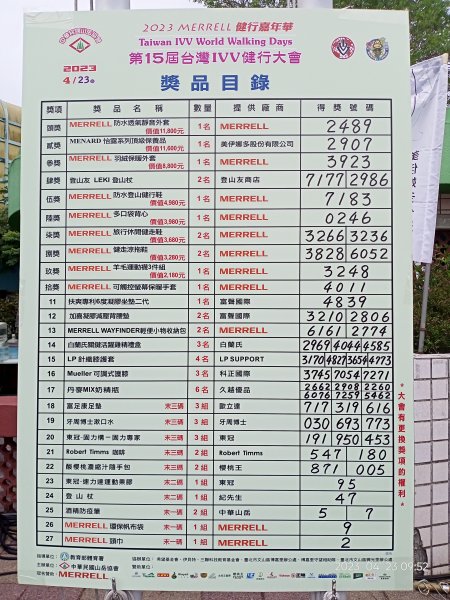 2023 MERRELL 健行嘉年華
Taiwan IVV World Walking Days
第15屆台灣IVV健行大會
2023
4/23
獎品目錄
獎項 獎品名稱 數量 提供廠商 得獎號碼
頭獎 MERRELL 防水透氣靜音外套 價值11,800元 1名 MERRELL 2489
貳獎 MENARD 怡露系列頂級保養品 價值11,600元 1名 美伊娜多股份有限公司 2907
參獎 MERRELL 羽絨保暖外套 價值8,800元 1名 MERRELL 3923
肆獎 登山友 LEKI 登山杖 2名 登山友商店 7177 2986
伍獎 MERRELL 防水登山健行鞋 價值4,980元 1名 MERRELL 7183
陸獎 MERRELL 多口袋背心 價值3,980元 1名 MERRELL 0246
柒獎 MERRELL 旅行休閒健走鞋 價值3,680元 2名 MERRELL 3266 3236
捌獎 MERRELL 健走涼拖鞋 價值3,280元 2名 MERRELL 3828 6052
玖獎 MERRELL 羊毛運動襪3件組 價值2,180元 1名 MERRELL 3248
拾獎 MERRELL 可觸控螢幕保暖手套 1名 MERRELL 4011
11 扶爽專利6度凝膠坐墊二代 1名 富聲國際 4839
12 加喜凝膠減壓背腰墊 2名 富聲國際 3210 2806
13 MERRELL WAYFINDER輕便小物收納包 2名 MERRELL 6161 2774
14 白蘭氏關健活蹤雞精禮盒 3名 白蘭氏 2969 4044 4585
15 LP 針織膝護套 4名 LP SUPPORT 3170 4827 3654 4773
16 Mueller 可調式護膝 3名 科正國際 3745 7054 7271
17 丹麥MIX奶精瓶 6名 久越優品 2662 2908 2260
6076 7259 5462
18 富足康足墊 末三碼 3組 歐立達 717 319 616
19 牙周博士漱口水 末三碼 3組 牙周博士 030 693 773
20 東冠-固力構-固力專家 末三碼 3組 東冠 191 950 453
21 Robert Timms 咖啡 末三碼 2組 Robert Timms 547 180
22 酸櫻桃濃縮汁隨手包 末三碼 2組 櫻桃王 871 005
23 東冠-速力達運動藥膠 末二碼 1組 東冠 95
24 登山杖 末二碼 1組 紀先生 47
25 酒精防疫筆 末一碼 2組 中華山岳 5 7
26 MERRELL 環保帆布袋 末一碼 1組 MERRELL 9
27 MERRELL 頭巾 末一碼 1組 MERRELL 2
*大會有更換獎項的權利*
指導單位: 教育部體育署
主辦單位: 中華民國山岳協會
冠名贊助: MERRELL
2023-04-23 09:52